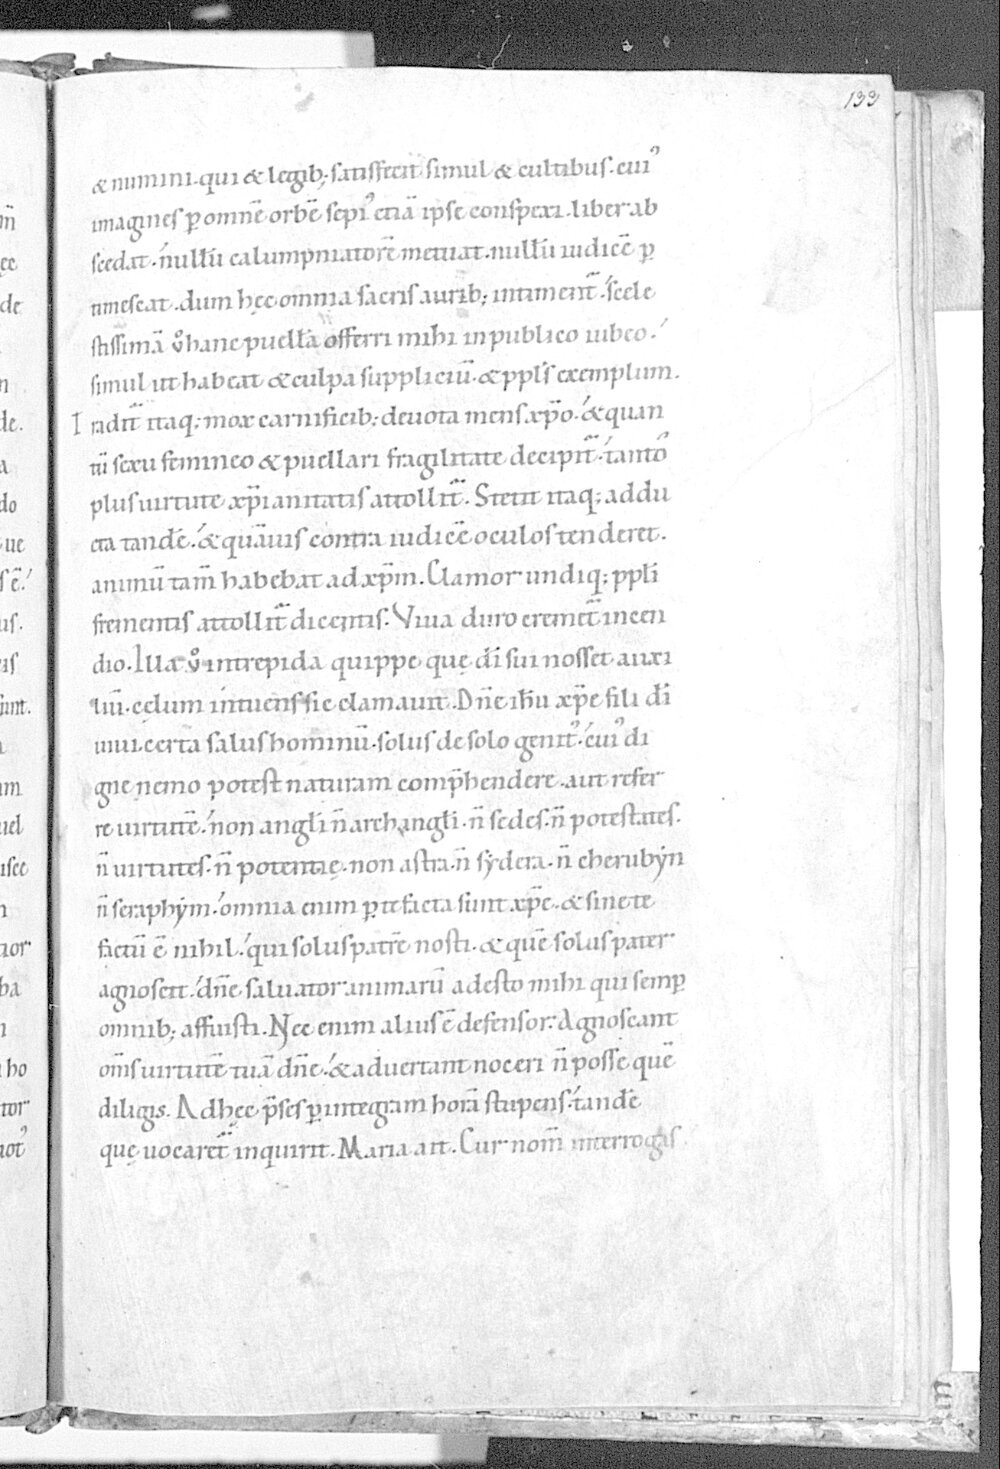 133
& numini. qui & legib; satisfecit simul & cultibus. cui᾽
imagines ꝑ omnē orbē sepi᾽ etiā ipse conspexi. liber ab
scedat. nullū calumpniatorē metuat. nullū iudicē ꝑ
timescat. dum hęc omnia sacris aurib; intimentᷓ. scele
stissimā v̊ hanc puellā offerri mihi in publico iubeo.
simul ut habeat & culpa suppliciū. & ppl̄s exemplum.
Tradit᷑ itaq; mox carnificib; devota mens xp̄o. & quan
tū sexu femineo & puellari fragilitate decipit᷑. tanto᾽
plus uirtute xp̄ianitatis attollit᷑. Stetit itaq; addu
cta tandē. & quāuis contra iudicē oculos tenderet.
animū tam̄ habebat ad xp̄m. Clamor undiq; ppl̄i
frementis attollit᷑ dicentis. Viua duro cremet᷑ incen
dio. Illa v̊ intrepida quippe quę dī sui nosset auxi
liū. cęlum intuens sic clamauit. Dn̄e ih̄u xp̄e fili dī
uiui. certa salus hominū. solus de solo genit᾽. cui᾽ di
gne nemo potest naturam comp̄hendere. aut refer
re uirtutē. non angl̄i n̄ archangl̄i. n̄ sedes. n̄ potestates.
n̄ uirtutes. n̄ potentię. non astra. n̄ sẏdera. n̄ cherubẏn
n̄ seraphẏm. omnia enim ꝑ te facta sunt xp̄e. & sine te
factū ē nihil. qui solus patrē nosti. & quē solus pater
agnoscit. dn̄e saluator animarū adesto mihi qui semꝑ
omnib; affuisti. Nec enim alius ē defensor. Agnoscant
om̄s uirtutē tuā dn̄e. & aduertant noceri n̄ posse quē
diligis. Ad hęc p̄ses ꝑ integram horā stupens. tandē
quę uocaret᷑ inquirit. Maria ait. Cur nom̄ interrogas